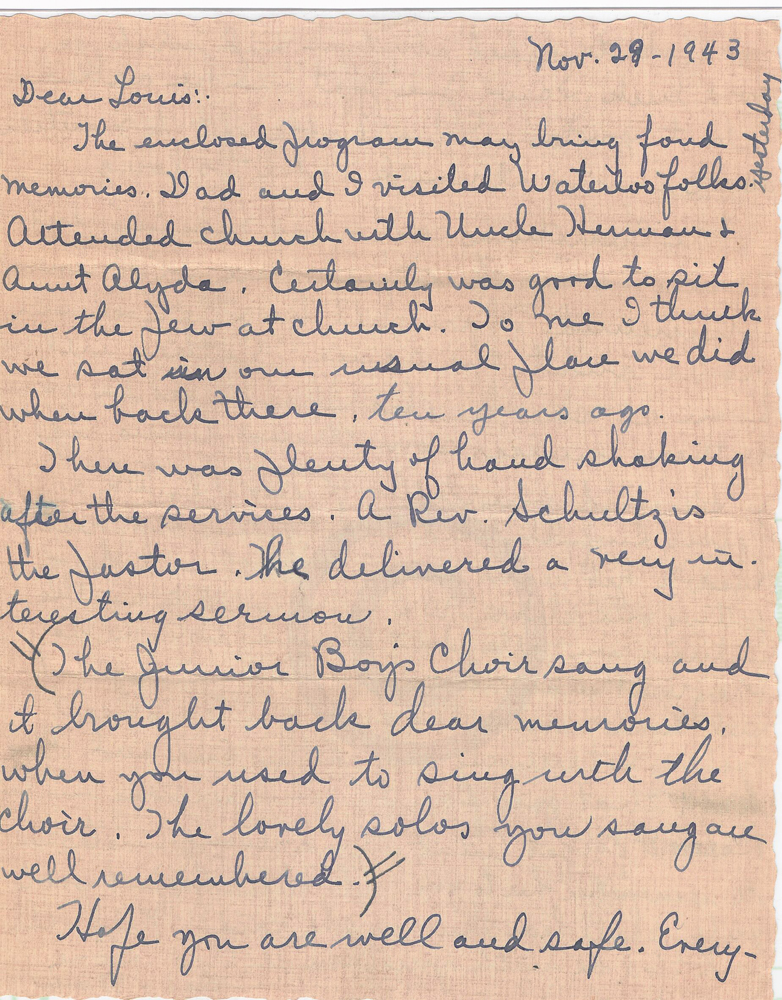 Nov. 29-1943
Dear Louis:
The enclosed program may bring fond
memories. Dad and I visited Waterloo folks. yesterday
Attended church with Uncle Herman &
Aunt Alyda. Certainly was good to sit
in the pew at church. To me I think
we sat in our usual place we did
when back there, ten years ago.
There was plenty of hand shaking
after the services. A Rev. Schultz is
the pastor. He delivered a very in-
teresting sermon.
(The Junior Boys Choir sang and
it brought back dear memories,
when you used to sing with the
choir. The lovely solos you sang are
well remembered.)
Hope you are well and safe. Every-